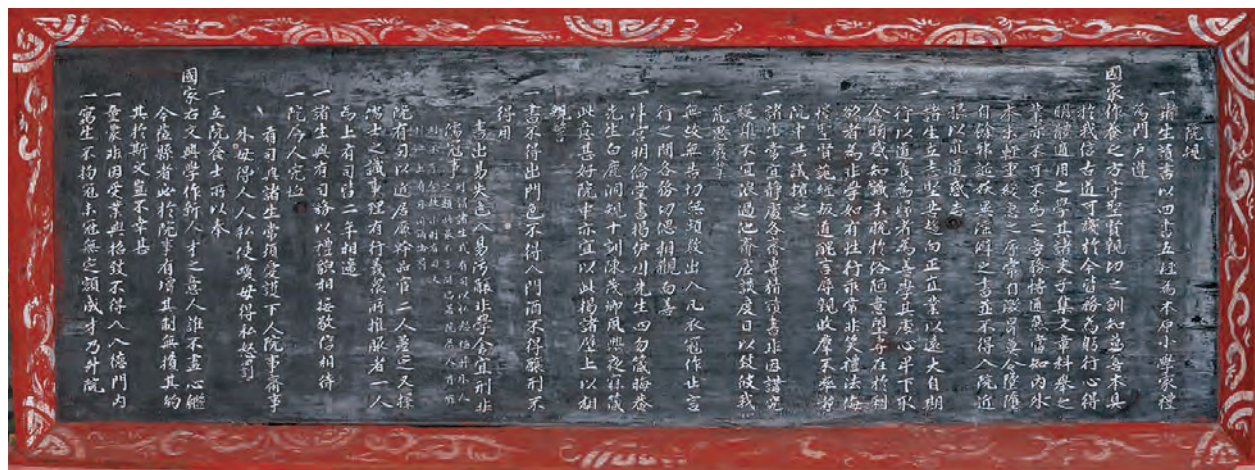 院規
一諸生讀書以四書五經爲本原小學家禮
爲門戶遵
國家作養之方守聖賢親切之訓知萬善本具
於我信古道可踐於今皆務爲躬行心得
明體適用之學其諸史子集文章科擧之
業亦不可不爲之旁務博通然當知內外
本末輕重緩急之序常自激昂莫令墜墮
自餘邪誕妖異淫僻之書並不得入院近
眼以亂道惑志
一諸生立志堅苦趨向正直業以遠大自期
行以道義爲歸者爲善學其處心卑下取
舍眩惑知識未脫於俗陋意望專在於利
欲者爲非學如有性行乖常非笑禮法侮
慢聖賢詭經反道醜言辱親敗群不率者
院中共議擯之
一諸生常宜靜處各齋專精讀書非因講究
疑難不宜浪過他齋虛談度日以致彼我
荒思廢業
一無故無告切無頻數出入凡衣冠作止言
行之間各務切偲相觀而善
一泮宮明倫堂書揭伊川先生四勿箴晦菴
先生白鹿洞規十訓陳茂卿夙興夜寐箴
此意甚好院中亦宜以此揭諸壁上以相
規警
一書不得出門色不得入門酒不得釀刑不
得用
書出易失色入易汚釀非學舍宜刑非
儒冠事
刑謂諸生或有司以私怒捶外人
之類此最不可開端若院屬人有罪
則不可全赦小則有司大
則與上有司同議論罰
院有司以近居廉幹品官二人差之又擇
儒士之識事理有行義衆所推服者一人
爲上有司皆二年相遞
一諸生與有司務以禮貌相接敬信相待
一院屬人完恤
有司與諸生常須愛護下人院事齋事
外毋得人人私使喚毋得私怒罰
一立院養士所以奉
國家右文興學作新人才之意人誰不盡心繼
今蒞縣者必於院事有增其制無損其約
其於斯文豈不幸甚
一童蒙非因受業與招致不得入入德門內
一寓生不拘冠未冠無定額成才乃升院